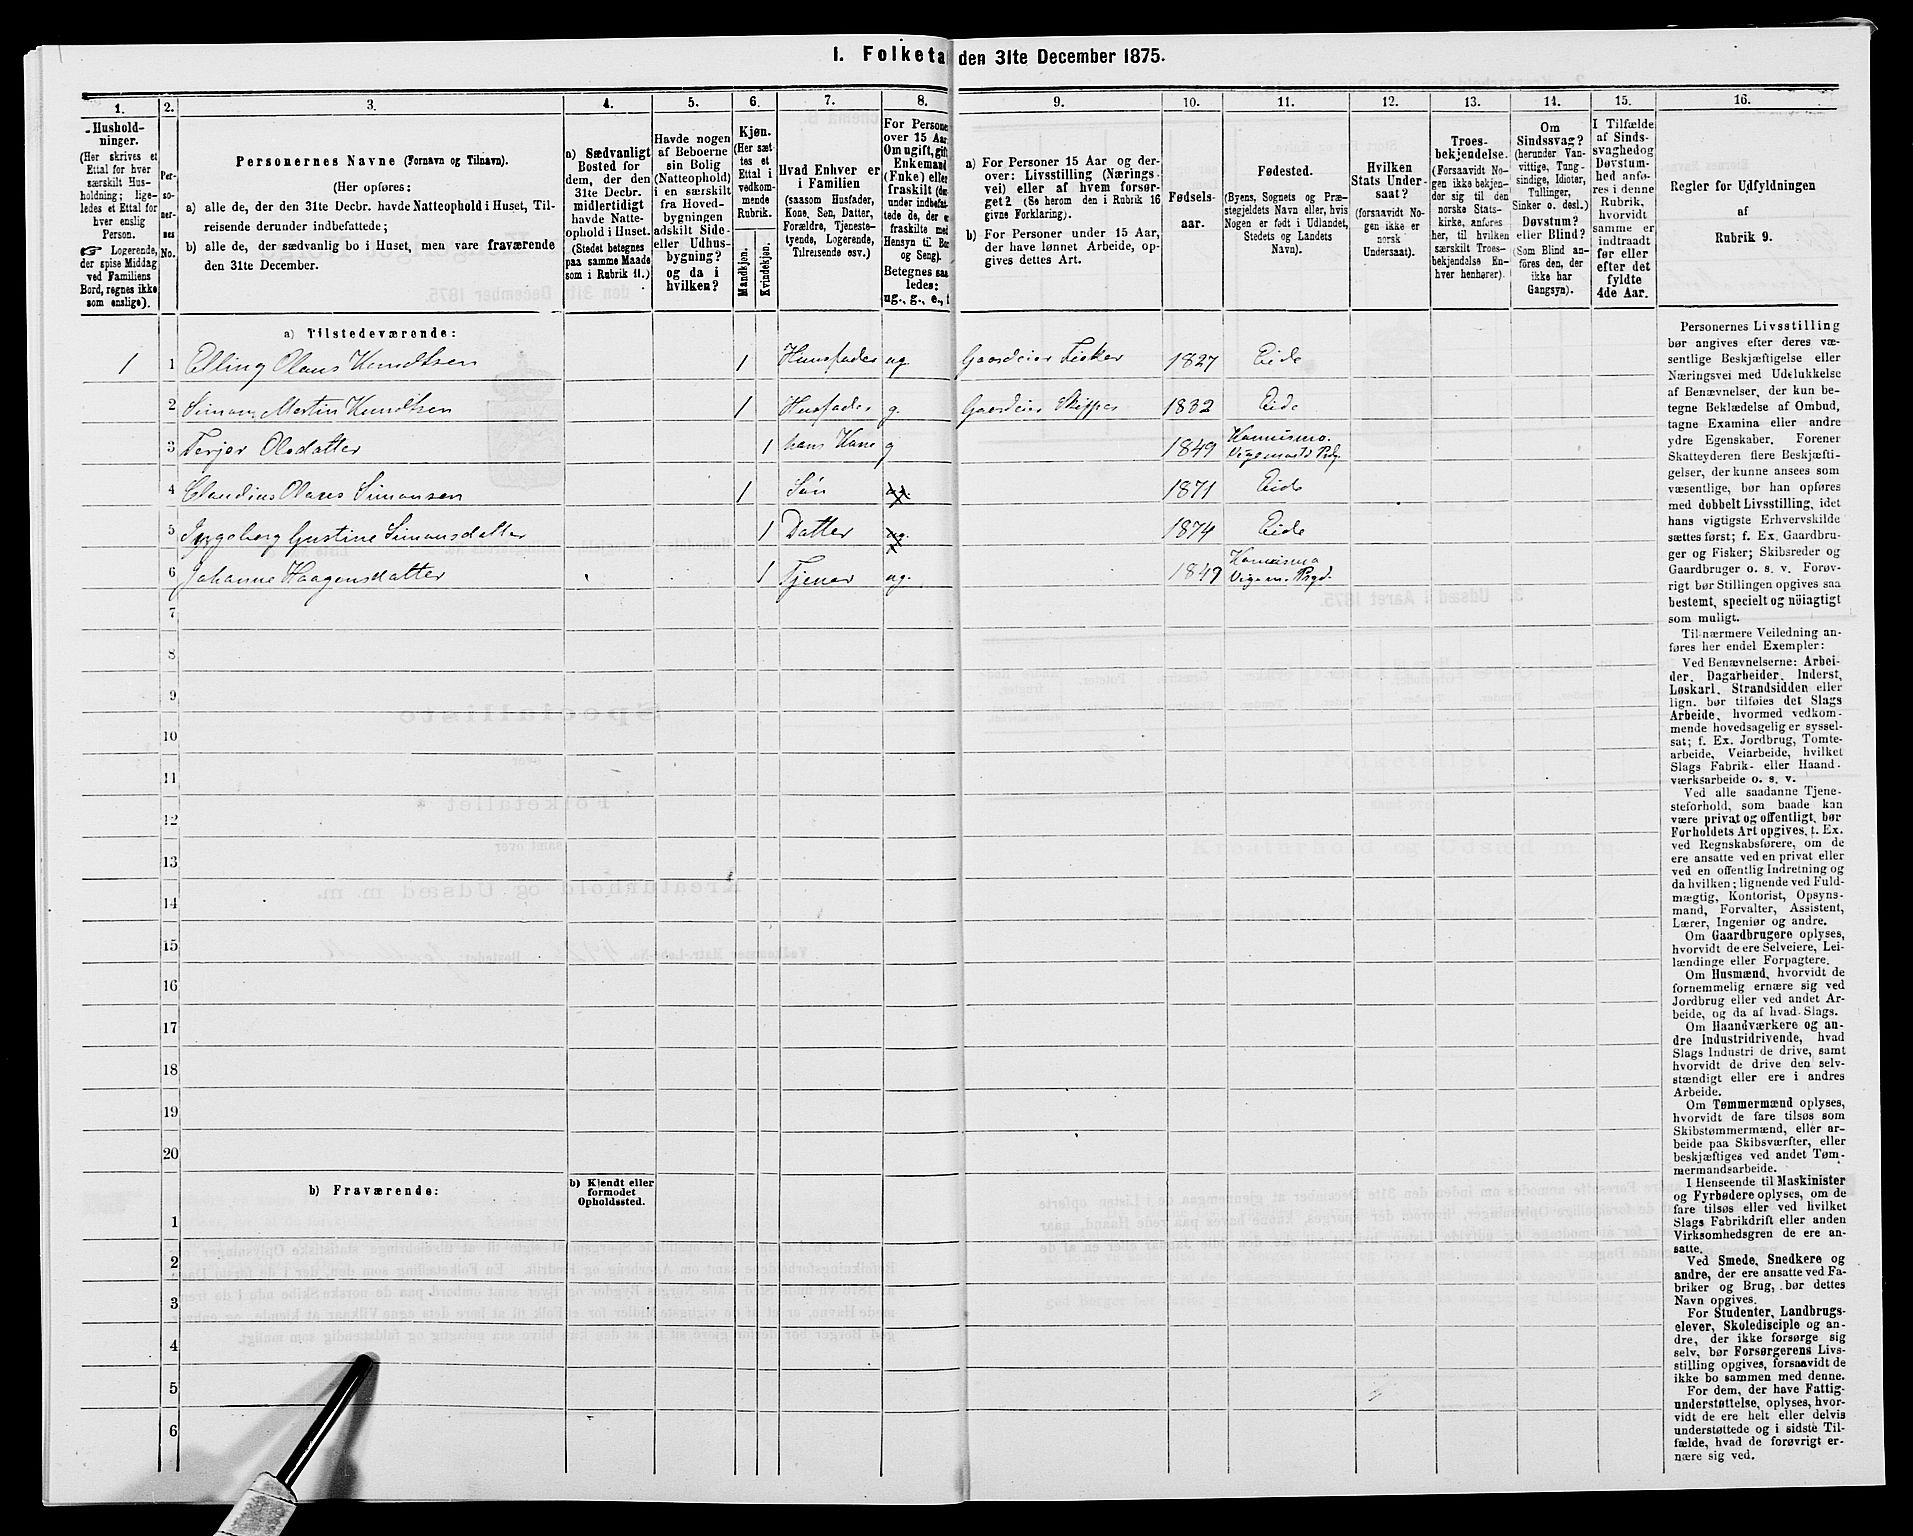 1. Folketa den 31te December 1875.
1. 2. 3. 4. 5. 6. 7. 8. 9. 10. 11. 12. 13. 14. 15. 16.
Hushold-
ninger.
(Her skrives et
Ettal for hver
særskilt Hus-
holdning; lige-
ledes et Ettal for
hver enslig
Person.
☞ Logerende,
der spise Middag
ved Familiens
Bord, regnes ikke
som enslige).
Per-
so-
ner-
nes
No.
Personernes Navne (Fornavn og Tilnavn).
(Her opføres:
a) alle de, der den 31te Decbr. havde Natteophold i Huset, Til-
reisende derunder indbefattede;
b) alle de, der sædvanlig bo i Huset, men vare fraværende
den 31te December.
a) Sædvanligt
Bosted for
dem, der den
31te Decbr.
midlertidigt
havde Natte-
ophold i Huset.
(Stedet betegnes
paa samme Maade
som i Rubrik 11.)
Havde nogen
af Beboerne
sin Bolig
(Natteophold)
i en særskilt
fra Hoved-
bygningen
adskilt Side-
eller Udhus-
bygning?
og da i
hvilken?
Kjøn.
(Her sæt-
tes et
Ettal i
vedkom-
mende
Rubrik.
Mandkjøn.
Kvindekjøn.
Hvad Enhver er
i Familien
(saasom Husfader,
Kone, Søn, Datter,
Forældre, Tjeneste-
tyende, Logerende,
Tilreisende osv.)
For Persone
over 15 Aar
Om ugift, gift
Enkemand
(Enke) eller
fraskilt (der-
under indbefat-
tede de, der er
fraskilte med
Hensyn til Bor
og Seng).
Betegnes saa
ledes:
ug., g., e., f
a) For Personer 15 Aar og der-
over: Livsstilling (Nærings-
vei) eller af hvem forsør-
get? (Se herom den i Rubrik 16
givne Forklaring).
b) For Personer under 15 Aar,
der have lønnet Arbeide, op-
gives dettes Art.
Fødsels-
aar.
Fødested.
(Byens, Sognets og Præ-
stegjeldets Navn eller, hvis
Nogen er født i Udlandet,
Stedets og Landets
Navn).
Hvilken
Stats Under-
saat?
(forsaavidt No-
gen ikke er
norsk
Undersaat).
Troes-
bekjendelse.
(Forsaavidt No-
gen ikke bekjen-
der sig til den
norske Stats-
kirke, anføres
her, til hvilken
særskilt Troes-
bekjendelse En-
hver henhører).
Om
Sindssvag?
(herunder Van-
vittige, Tung-
sindige, Idioter,
Tullinger,
Sinker o. desl.)
Døvstum?
eller Blind?
(Som Blind an-
føres den, der
ikke har
Gangsyn).
I Tilfælde
af Sinds-
svaghed og
Døvstum-
hed anfø-
res i denne
Rubrik,
hvorvidt
samme er
indtraadt
før eller
efter det
fyldte
4de Aar.
Regler for Udfyldningen
af
Rubrik 9.
a) Tilstedeværende:
1 1 Elling Olaus Knudtsen 1 Huusfader ug. Gaardeier Fisker 1827 Eide
2 Simon Martin Knudtsen 1 Husfader g. Gaardeier Skipper 1832 Eide
3 Terjer Olsdatter 1 hans Kone g 1849
4 Claudius Olaus Simonsen 1 Søn ug. 1871 Eide
5 Ingeborg Gustine Simonsdatter 1 Datter ug. 1874 Eide
6 Johanne Haagensdatter 1 Tjener ug. 1849
7
8
9
10
11
12
13
14
15
16
17
18
19
20
b) Fraværende:
b) Kjendt eller
formodet
Opholdssted.
1
2
3
4
5
6
Personernes Livsstilling
bør angives efter deres væ-
sentlige Beskjæftigelse eller
Næringsvei med Udelukkelse
af Benævnelser, der kun be-
tegne Beklædelse af Ombud,
tagne Examina eller andre
ydre Egenskaber. Forener
Skatteyderen flere Beskjæfti-
gelser, der kunne ansees som
væsentlige, bør han opføres
med dobbelt Livsstilling, idet
hans vigtigste Erhvervskilde
sættes først; f. Ex. Gaardbru-
ger og Fisker; Skibsreder og
Gaardbruger o. s. v. Forøv-
rigt bør Stillingen opgives saa
bestemt, specielt og nöiagtigt
som muligt.
Til nærmere Veiledning an-
føres her endel Exempler:
Ved Benævnelserne: Arbei-
der, Dagarbeider, Inderst,
Løskarl, Strandsidden eller
lign. bør tilføies det Slags
Arbeide, hvormed vedkom-
mende hovedsagelig er syssel-
sat; f. Ex. Jordbrug, Tomte-
arbeide, Veiarbeide, hvilket
Slags Fabrik- eller Haand-
værksarbeide o. s. v.
Ved alle saadanne Tjene-
steforhold, som baade kan
være privat og offentligt, bør
Forholdets Art opgives, f. Ex.
ved Regnskabsførere, om de
ere ansatte ved en privat eller
ved en offentlig Indretning og
da hvilken; lignende ved Fuld-
mægtig, Kontorist, Opsyns-
mand, Forvalter, Assistent,
Lærer, Ingeniør og andre.
Om Gaardbrugere oplyses,
hvorvidt de ere Selveiere, Lei-
lændinge eller Forpagtere.
Om Husmænd, hvorvidt de
fornemmelig ernære sig ved
Jordbrug eller ved andet Ar-
beide, og da af hvad Slags.
Om Haandværkere og an-
dre Industridrivende, hvad
Slags Industri de drive, samt
hvorvidt de drive den selv-
stændigt eller ere i andres
Arbeide.
Om Tømmermænd oplyses,
hvorvidt de fare tilsøs som
Skibstømmermænd, eller ar-
beide paa Skibsværfter, eller
beskjæftiges ved andet Tøm-
mermandsarbeide.
I Henseende til Maskinister
og Fyrbødere oplyses, om de
fare tilsøs eller ved hvilket
Slags Fabrikdrift eller anden
Virksomhedsgren de ere an-
satte.
Ved Smede, Snedkere og
andre, der ere ansatte ved Fa-
briker og Brug, bør dettes
Navn opgives.
For Studenter, Landbrugs-
elever, Skoledisciple og an-
dre, der ikke forsørge sig
selv, bør Forsørgerens Livs-
stilling opgives, forsaavidt de
ikke bo sammen med denne.
For dem, der have Fattig-
understøttelse, oplyses, hvor-
vidt de ere helt eller delvis
understøttede og i sidste Til-
fælde, hvad de forøvrigt er-
nære sig ved.